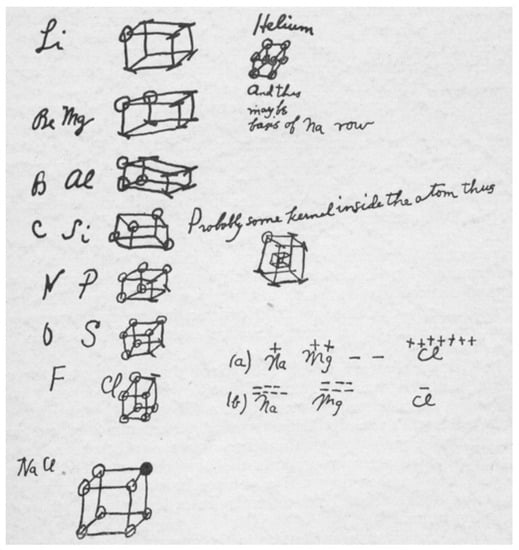 Li
Helium
And thus
may be
bars of Na row
Be Mg
B Al
C Si
Probably some kernel inside the atom thus
N P
O S
(a) + Na ++ Mg - - +++++++ Cl
F Cl
(b) Na Mg - Cl
Na Cl.